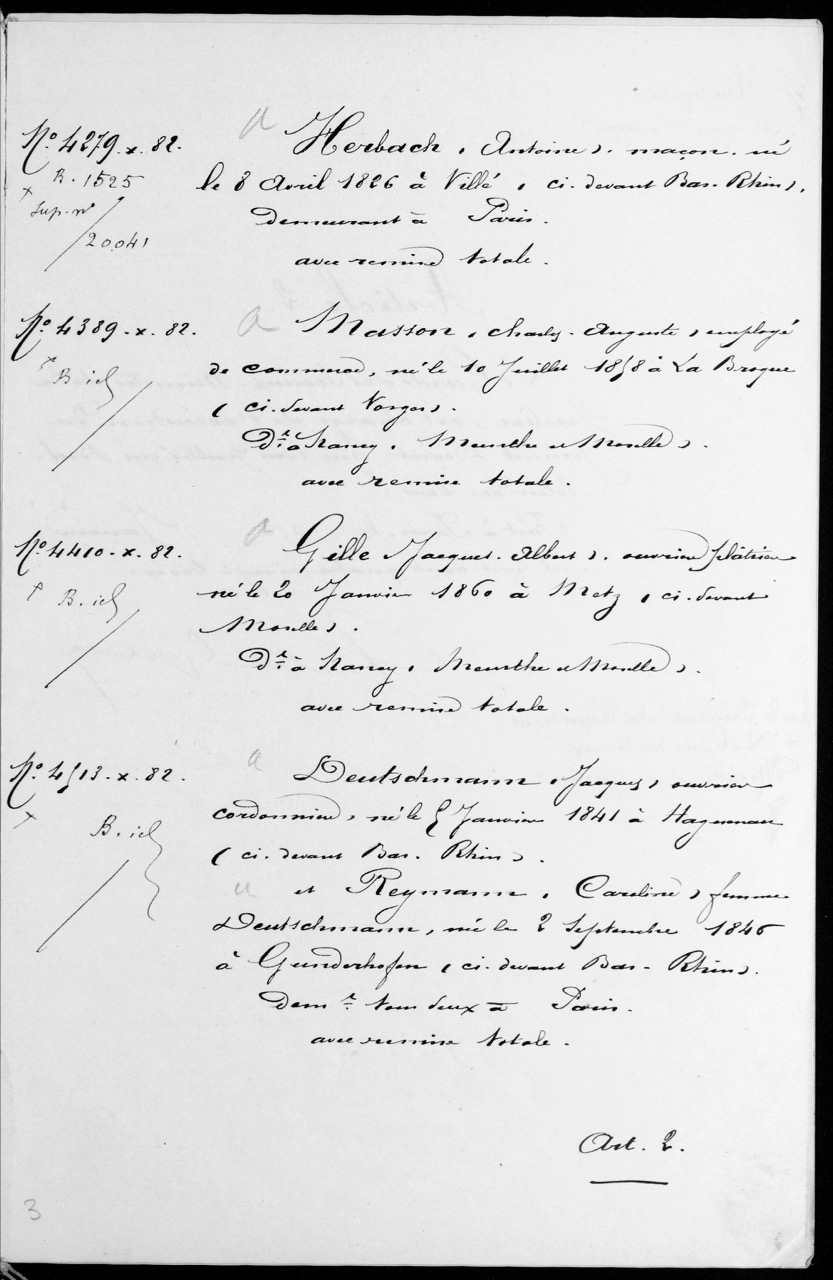 No 4279 - x - 82.
B. 1525
x
Sup. no
20.041
a Herbach (Antoine), maçon, né
le 8 Avril 1826 à Villé, (ci-devant Bas-Rhin),
demeurant à Paris.
avec remise totale.
No 4389 - x - 82.
x
B. id
a Masson, (Charles-Auguste), employé
de commerce, né le 10 Juillet 1858 à La Broque
(ci-devant Vosges).
Dt à Nancy, (Meurthe et Moselle).
avec remise totale.
No 4410 - x - 82.
B. id
a Gille (Jacques-Albert), ouvrier plâtrier
né le 20 Janvier 1860 à Metz, (ci-devant
Moselle).
Dt à Nancy, (Meurthe et Moselle).
avec remise totale.
No 4513 - x - 82.
x
B. id
a Deutschmann (Jacques), ouvrier
cordonnier, né le 5 Janvier 1841 à Haguenau
(ci-devant Bas-Rhin).
a et Reymann, (Caroline) femme
Deutschmann, née le 2 Septembre 1846
à Gunderhofen (ci-devant Bas-Rhin).
Demt tous deux à Paris.
avec remise totale.
Art. 2.
3